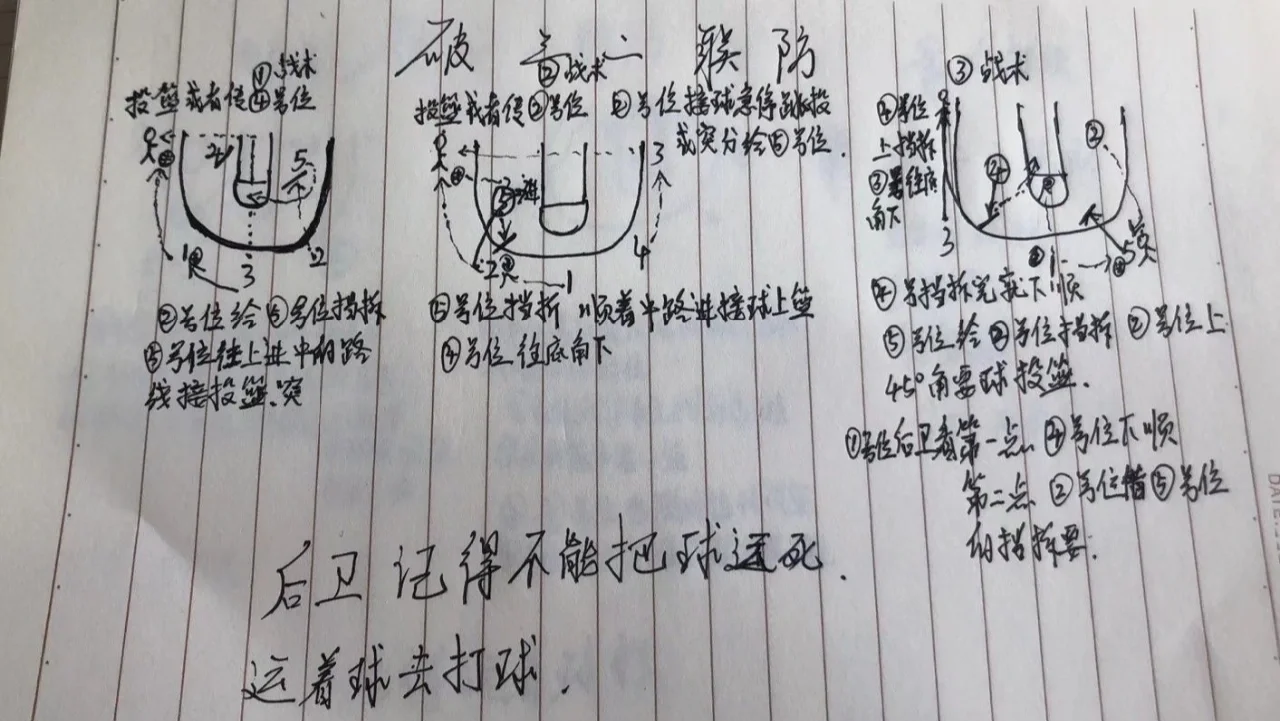 破 二 联 防
①战术
投篮或者传④号位
2
5
1
3
2
②号位给⑤号位挡拆
⑤号位往上进中的路
线接投篮.突
②战术
投篮或者传③号位 ②号位接球急停跳投
或突分给⑤号位.
3
4
2
1
⑤号位挡拆 顺着中路进接球上篮
④号位往底角下
③战术
④号位
上挡拆
③号往底
角下
②
④
3
1
5
④号挡拆完就下顺
⑤号位给②号位挡拆 ②号位上
45°角要球投篮.
①号位后卫看第一点 ④号位下顺
第二点 ②号位借⑤号位
的挡拆要.
后卫记得不能把球运死.
运着球去打球.